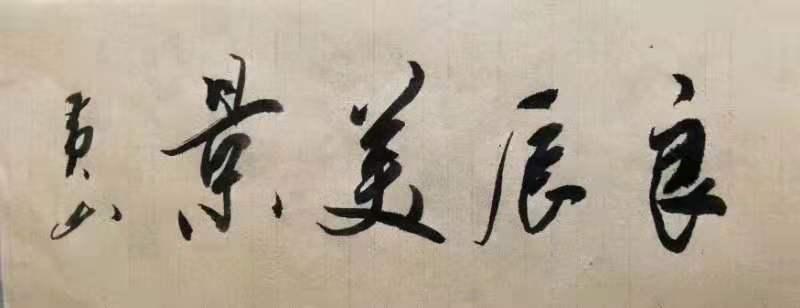 良辰美景
黄山